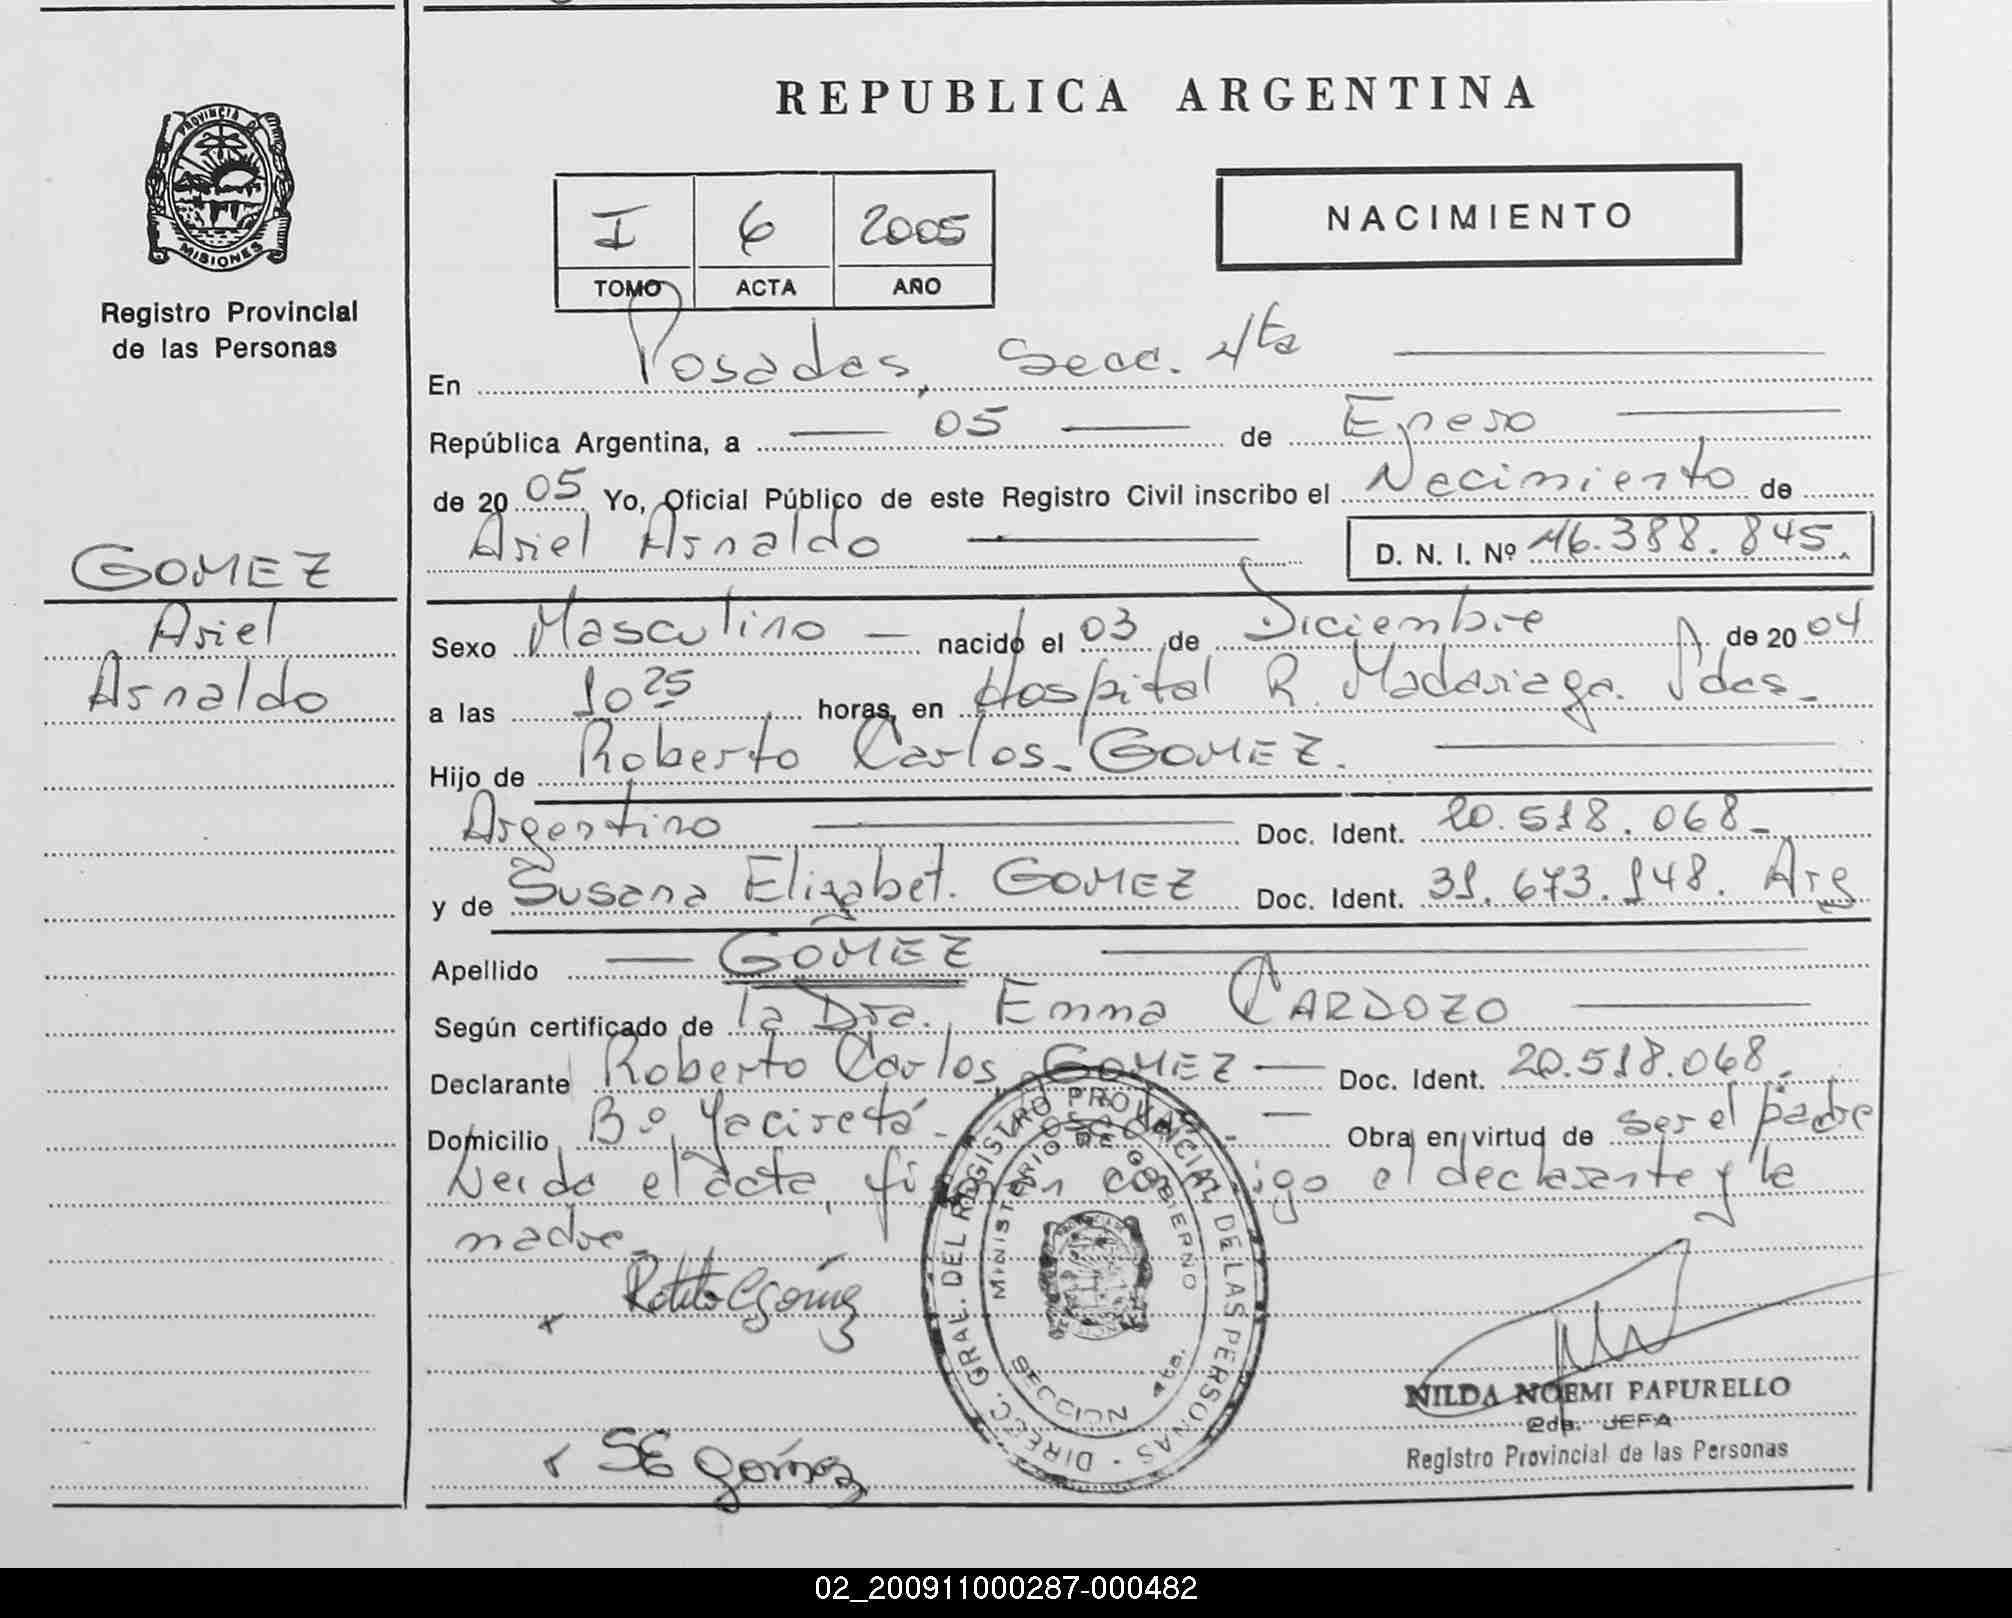 REPUBLICA ARGENTINA
PROVINCIA DE
MISIONES
Registro Provincial
de las Personas
I 6 2005
TOMO ACTA AÑO
NACIMIENTO
En Posadas, Secc. 4ta
República Argentina, a 05 de Enero
de 2005 Yo, Oficial Público de este Registro Civil inscribo el Nacimiento de
Ariel Arnaldo D. N. I. Nº 46.388.845.
GOMEZ
Ariel
Arnaldo
Sexo Masculino nacido el 03 de Diciembre de 2004
a las 10 25 horas, en Hospital R. Madariaga. Pdas.
Hijo de Roberto Carlos GOMEZ.
Argentino Doc. Ident. 20.518.068
y de Susana Elizabet. GOMEZ Doc. Ident. 31.673.148. Arg
Apellido GOMEZ
Según certificado de la Dra. Emma CARDOZO
Declarante Roberto Carlos GOMEZ Doc. Ident. 20.518.068.
Domicilio Bº Yaciretá Posadas Obra en virtud de ser el padre
Leida el acta, firman conmigo el declarante y la
madre
Roberto C Gómez
SE Gómez
DIRECC. GRAL. DEL REGISTRO PROVINCIAL DE LAS PERSONAS
MINISTERIO DE GOBIERNO
SECCION 4ta.
NILDA NOEMI PAPURELLO
2da. JEFA
Registro Provincial de las Personas
02_200911000287-000482